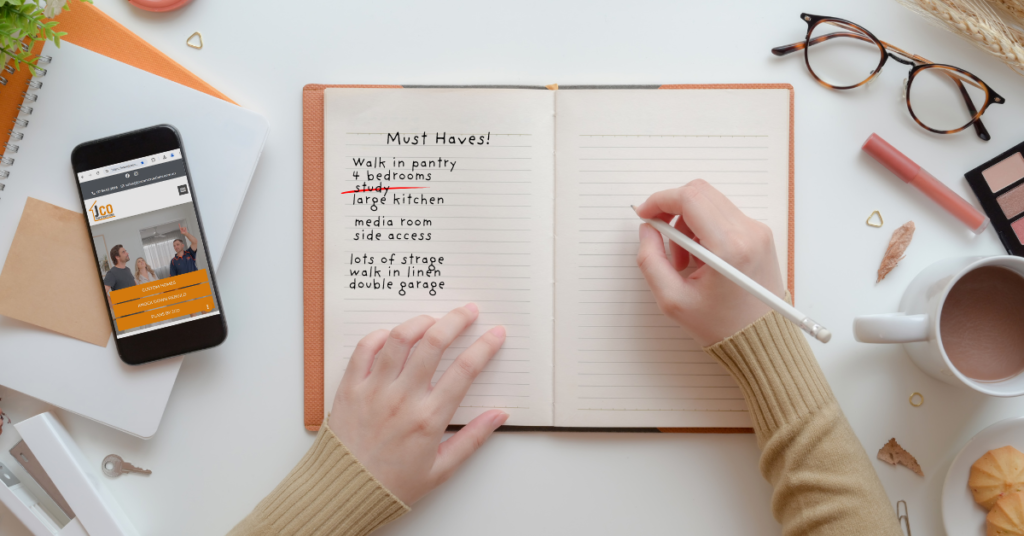 Must Haves!
Walk in pantry
4 bedrooms
study
large kitchen
media room
side access
lots of strage
walk in linen
double garage
CUSTOM HOMES